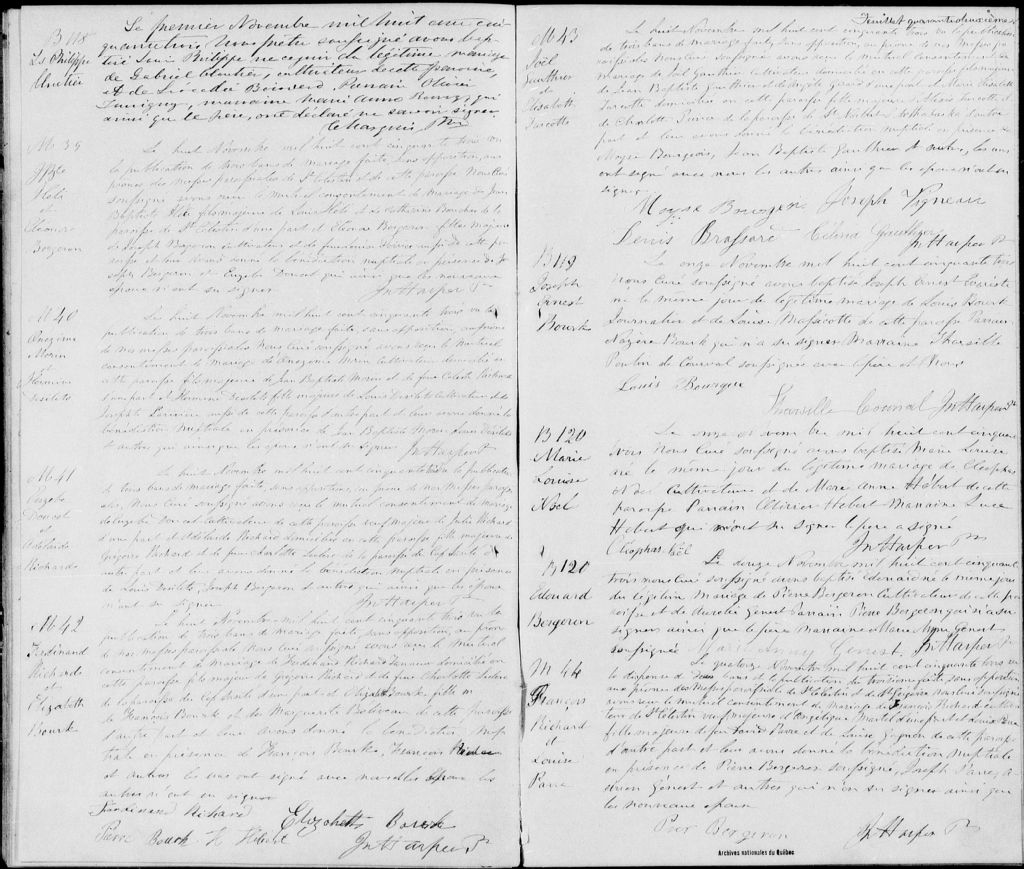 B 118
Ls Philippe
Cloutier
Le premier Novembre mil huit cent cin
quante trois Nous prêtre soussigné avons bap
tisé Louis Philippe né ce jour du légitime mariage
de Gabriel Cloutier, cultivateur de cette paroisse,
et de Léocadie Boisvert Parrain Olivier
marraine Marie Anne qui
ainsi que le père, ont déclaré ne savoir signer.
Ptre
M 39
J Bte
Hélie
et
Eléonore
Bergeron
Le huit Novembre mil huit cent cinquante trois vu
la publication de trois bans de mariage faite sans opposition aux
prônes des messes paroissiales de St Célestin et de cette paroisse Nous Curé
soussigné avons reçu le mutuel consentement de mariage de Jean
Baptiste Hélie fils majeur de Louis Hélie et de Catherine Boucher de la
paroisse de St Célestin d'une part et Eléonore Bergeron fille majeure
de Joseph Bergeron cultivateur et de de cette pa
roisse et leur avons donné la bénédiction nuptiale en présence de Jo
seph Bergeron et Euzèbe Doucet qui ainsi que les nouveaux
époux n'ont su signer
Jn Harper Ptre
M 40
Onezime
Morin
et
Herminie
Desilets
Le huit Novembre mil huit cent cinquante trois vu la
publication de trois bans de mariage faite sans opposition au prône
de nos messes paroissiales Nous Curé soussigné avons reçu le mutuel
consentement de mariage de Onezime Morin Cultivateur domicilié en
cette paroisse fils majeur de Jean Baptiste Morin et de feue Celeste Richard
d'une part et Herminie Desilets fille majeure de Louis Desilets Cultivateur et de
Josephte de cette paroisse d'autre part et leur avons donné la
bénédiction nuptiale en présence de Jean Baptiste Morin Louis Desilets
et autres qui ainsi que les époux n'ont su signer
Jn Harper Ptre
M 41
Euzèbe
Doucet
et
Adelaide
Richard
Le huit Novembre mil huit cent cinquante trois vu la publication
de trois bans de mariage faite, sans opposition, au prône de nos Messes paroissi
ales, Nous Curé soussigné avons reçu le mutuel consentement de mariage
de Euzèbe Doucet Cultivateur de cette paroisse veuf majeur de Julie Richard
d'une part et Adelaide Richard domiciliée en cette paroisse fille majeure de
Grégoire Richard et de feue Charlotte Leclerc de la paroisse du Cap Santé d'
autre part et leur avons donné la bénédiction nuptiale en présence
de Louis Desilets, Joseph Bergeron et autres qui ainsi que les époux
n'ont su signer
Jn Harper Ptre
M 42
Ferdinand
Richard
et
Elizabeth
Bourk
Le huit Novembre mil huit cent cinquante trois vu la
publication de trois bans de mariage faite, sans opposition, au prône
de nos messes paroissiales Nous Curé soussigné avons reçu le mutuel
consentement de mariage de Ferdinand Richard domicilié en
cette paroisse fils majeur de Grégoire Richard et de feue Charlotte Leclerc
de la paroisse du Cap Santé d'une part et Elizabeth Bourk fille m
de François Bourk et de Marguerite Beliveau de cette paroisse
d'autre part et leur avons donné la bénédiction nup
tiale en présence de François Bourk, François
et autres les uns ont signé avec nous les époux les
autres n'ont su signer
Ferdinand Richard Elizabeth Bourk
Pierre Bourk H Hébert Jn Harper Ptre
Feuillet quarante deuxième
M 43
Joël
Gauthier
et
Elizabeth
Turcotte
Le huit Novembre mil huit cent cinquante trois vu la publication
de trois bans de mariage faite, sans opposition, au prône de nos Messes parois
siales Nous Curé soussigné avons reçu le mutuel consentement de
mariage de Joël Gauthier Cultivateur domicilié en cette paroisse fils majeur
de Jean Baptiste Gauthier et de d'une part et Marie Elizabeth
Turcotte domiciliée en cette paroisse fille majeure d'Alexis Turcotte et
de Charlotte de la paroisse de St d'autre
part et leur avons donné la bénédiction nuptiale en présence de
Moyse Bourgeois, Jean Baptiste Gauthier et autres, les uns
ont signé avec nous les autres ainsi que les époux n'ont su
signer
Moyse Bourgeois Joseph Vigneau
Denis Brassard Célina Gauthier
Jn Harper Ptre
B 119
Joseph
Ernest
Bourk
Le onze Novembre mil huit cent cinquante trois
Nous Curé soussigné avons baptisé Joseph Ernest
né le même jour du légitime mariage de Louis Bourk
Journalier et de Louise Massicotte de cette paroisse Parrain
Nazère Bourk qui n'a su signer Marraine Tharsille
Poulin de Courval soussignée avec le père et Nous
Louis Bourque
Tharsille Courval Jn Harper Ptre
B 120
Marie
Louise
Noël
Le onze Novembre mil huit cent cinquante
trois Nous Curé soussigné avons baptisé Marie Louise
née le même jour du légitime mariage de Cléophas
Noël Cultivateur et de Marie Anne Hébert de cette
paroisse Parrain Olivier Hébert Marraine Luce
Hébert qui n'ont su signer le père a signé
Cléophas Noël Jn Harper Ptre
B 120
Edouard
Bergeron
Le douze Novembre mil huit cent cinquante
trois nous Curé soussigné avons baptisé Edouard né le même jour
du légitime Mariage de Pierre Bergeron Cultivateur de cette pa
roisse et de Aurélie Genest Parrain Pierre Bergeron qui n'a su
signer ainsi que le père Marraine Marie Anne Genest
soussignée Marie Anny Genest Jn Harper Ptre
M 44
François
Richard
et
Louise
Parre
Le quatorze Novembre mil huit cent cinquante trois vu
la dispense de deux bans et la publication du troisième faite, sans opposition
aux prônes des Messes paroissiales de St Célestin et de St Grégoire Nous Curé soussigné
avons reçu le mutuel consentement de mariage de François Richard cultiva
teur de St Célestin veuf majeur d'Angélique Martel d'une part et Louise Parre
fille majeure de feu Parre et de Louise Gagnon de cette paroisse
d'autre part et leur avons donné la bénédiction nuptiale
en présence de Pierre Bergeron soussigné, Joseph Parre, A
drien Genest et autres qui n'ont su signer ainsi que
les nouveaux époux
Pier Bergeron Jn Harper Ptre
Archives nationales du Québec